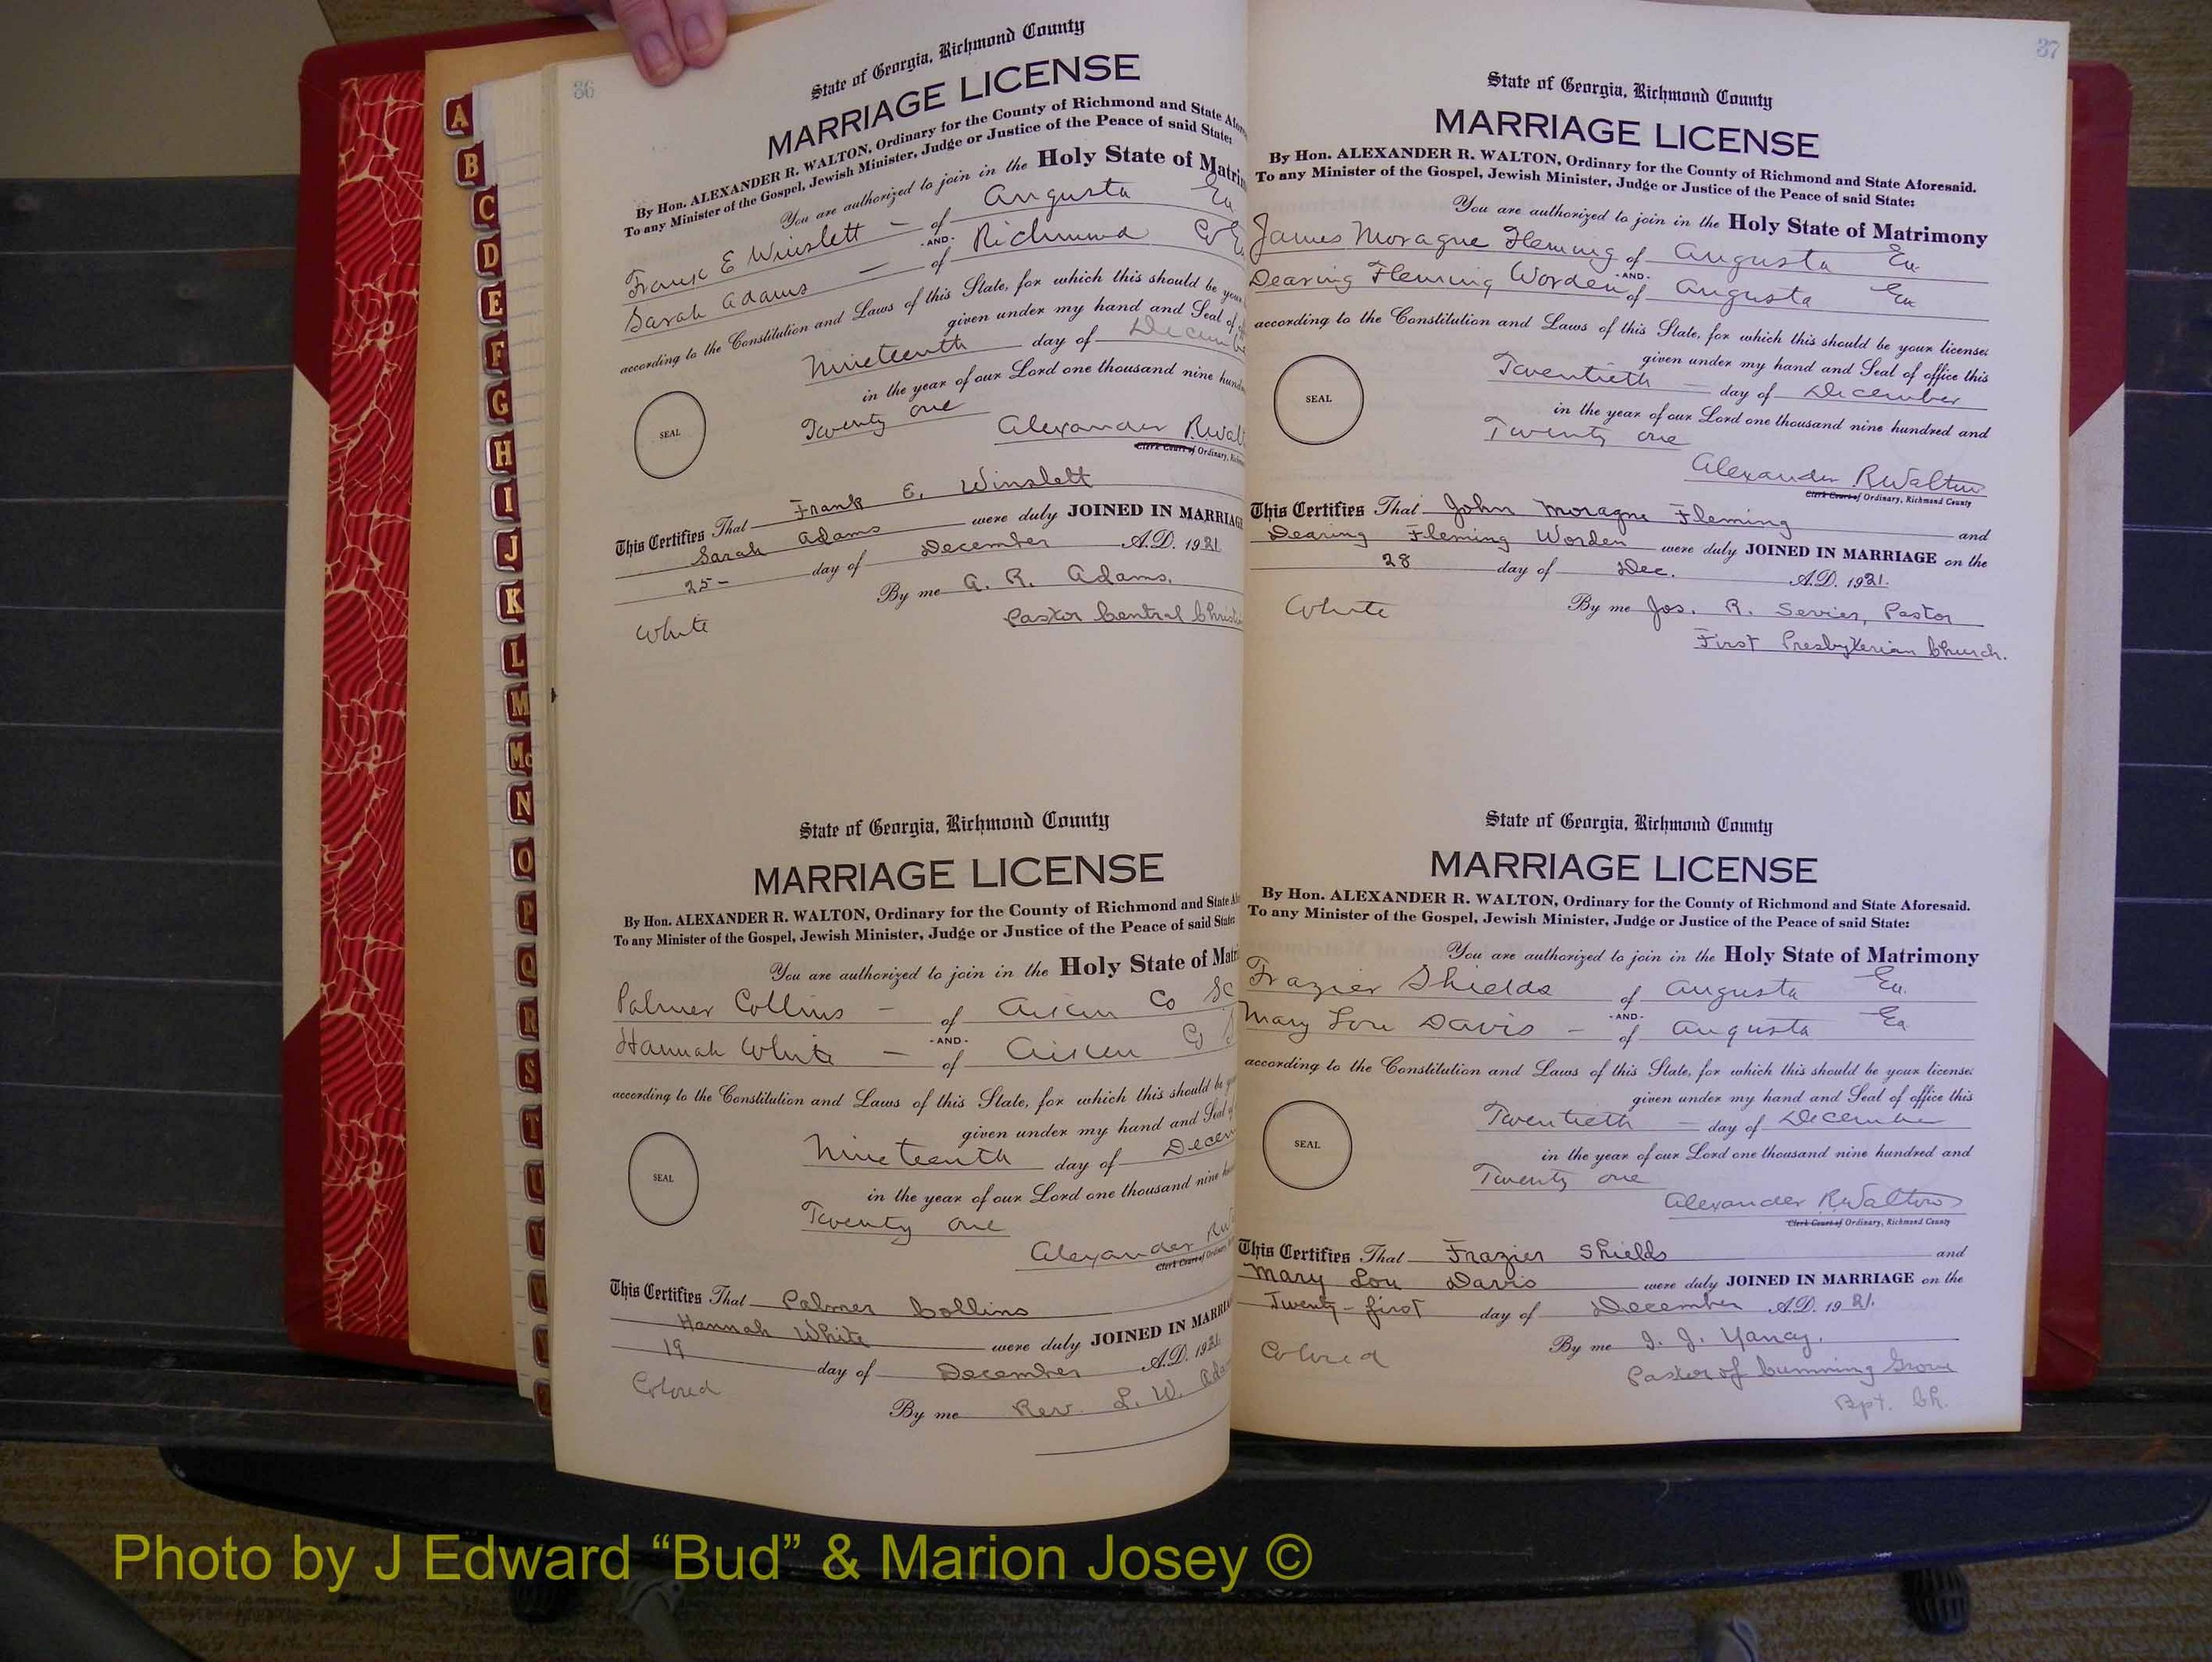 36
State of Georgia, Richmond County
MARRIAGE LICENSE
By Hon. ALEXANDER R. WALTON, Ordinary for the County of Richmond and State
To any Minister of the Gospel, Jewish Minister, Judge or Justice of the Peace of said State:
You are authorized to join in the Holy State of
Frank E Winslett — of Augusta Ga
-AND-
Sarah Adams — of Richmond Co
according to the Constitution and Laws of this State, for which this should be
given under my hand and Seal of
Nineteenth day of
in the year of our Lord one thousand nine
Twenty one
SEAL
Alexander
Clerk Court of Ordinary,
This Certifies That Frank E. Winslett
Sarah Adams were duly JOINED IN MARRIAGE
25- day of December A.D. 1921
By me A. R. Adams,
White
Pastor Central
State of Georgia, Richmond County
MARRIAGE LICENSE
By Hon. ALEXANDER R. WALTON, Ordinary for the County of Richmond and State
To any Minister of the Gospel, Jewish Minister, Judge or Justice of the Peace of said State:
You are authorized to join in the Holy State of
Palmer Collins — of Aiken Co SC
-AND-
Hannah White — of Aiken Co
according to the Constitution and Laws of this State, for which this should be
given under my hand and Seal
Nineteenth day of
in the year of our Lord one thousand nine
Twenty one
SEAL
Alexander
Clerk Court of Ordinary,
This Certifies That Palmer Collins
Hannah White were duly JOINED IN
19 day of December A.D. 1921
Colored
By me Rev. L. W.
37
State of Georgia, Richmond County
MARRIAGE LICENSE
By Hon. ALEXANDER R. WALTON, Ordinary for the County of Richmond and State Aforesaid.
To any Minister of the Gospel, Jewish Minister, Judge or Justice of the Peace of said State:
You are authorized to join in the Holy State of Matrimony
James Moragne Fleming of Augusta Ga
-AND-
Dearing Fleming Worden of Augusta Ga
according to the Constitution and Laws of this State, for which this should be your license;
given under my hand and Seal of office this
Twentieth — day of December
in the year of our Lord one thousand nine hundred and
Twenty one
SEAL
Alexander R Walton
Clerk Court of Ordinary, Richmond County
This Certifies That John Moragne Fleming and
Dearing Fleming Worden were duly JOINED IN MARRIAGE on the
28 day of Dec. A.D. 1921.
White
By me Jos. R. Sevier, Pastor
First Presbyterian Church.
State of Georgia, Richmond County
MARRIAGE LICENSE
By Hon. ALEXANDER R. WALTON, Ordinary for the County of Richmond and State Aforesaid.
To any Minister of the Gospel, Jewish Minister, Judge or Justice of the Peace of said State:
You are authorized to join in the Holy State of Matrimony
Frazier Shields of Augusta Ga.
-AND-
Mary Lou Davis — of Augusta Ga
according to the Constitution and Laws of this State, for which this should be your license;
given under my hand and Seal of office this
Twentieth — day of December
in the year of our Lord one thousand nine hundred and
Twenty one
SEAL
Alexander R Walton
Clerk Court of Ordinary, Richmond County
This Certifies That Frazier Shields and
Mary Lou Davis were duly JOINED IN MARRIAGE on the
Twenty-first day of December A.D. 1921.
Colored
By me I. J. Yancy.
Pastor of Cumming Grove
Bpt. Ch.
A
B
C
D
E
F
G
H
I
J
K
L
M
Mc
N
O
P
Q
R
S
T
U
V
W
Photo by J Edward “Bud” & Marion Josey ©